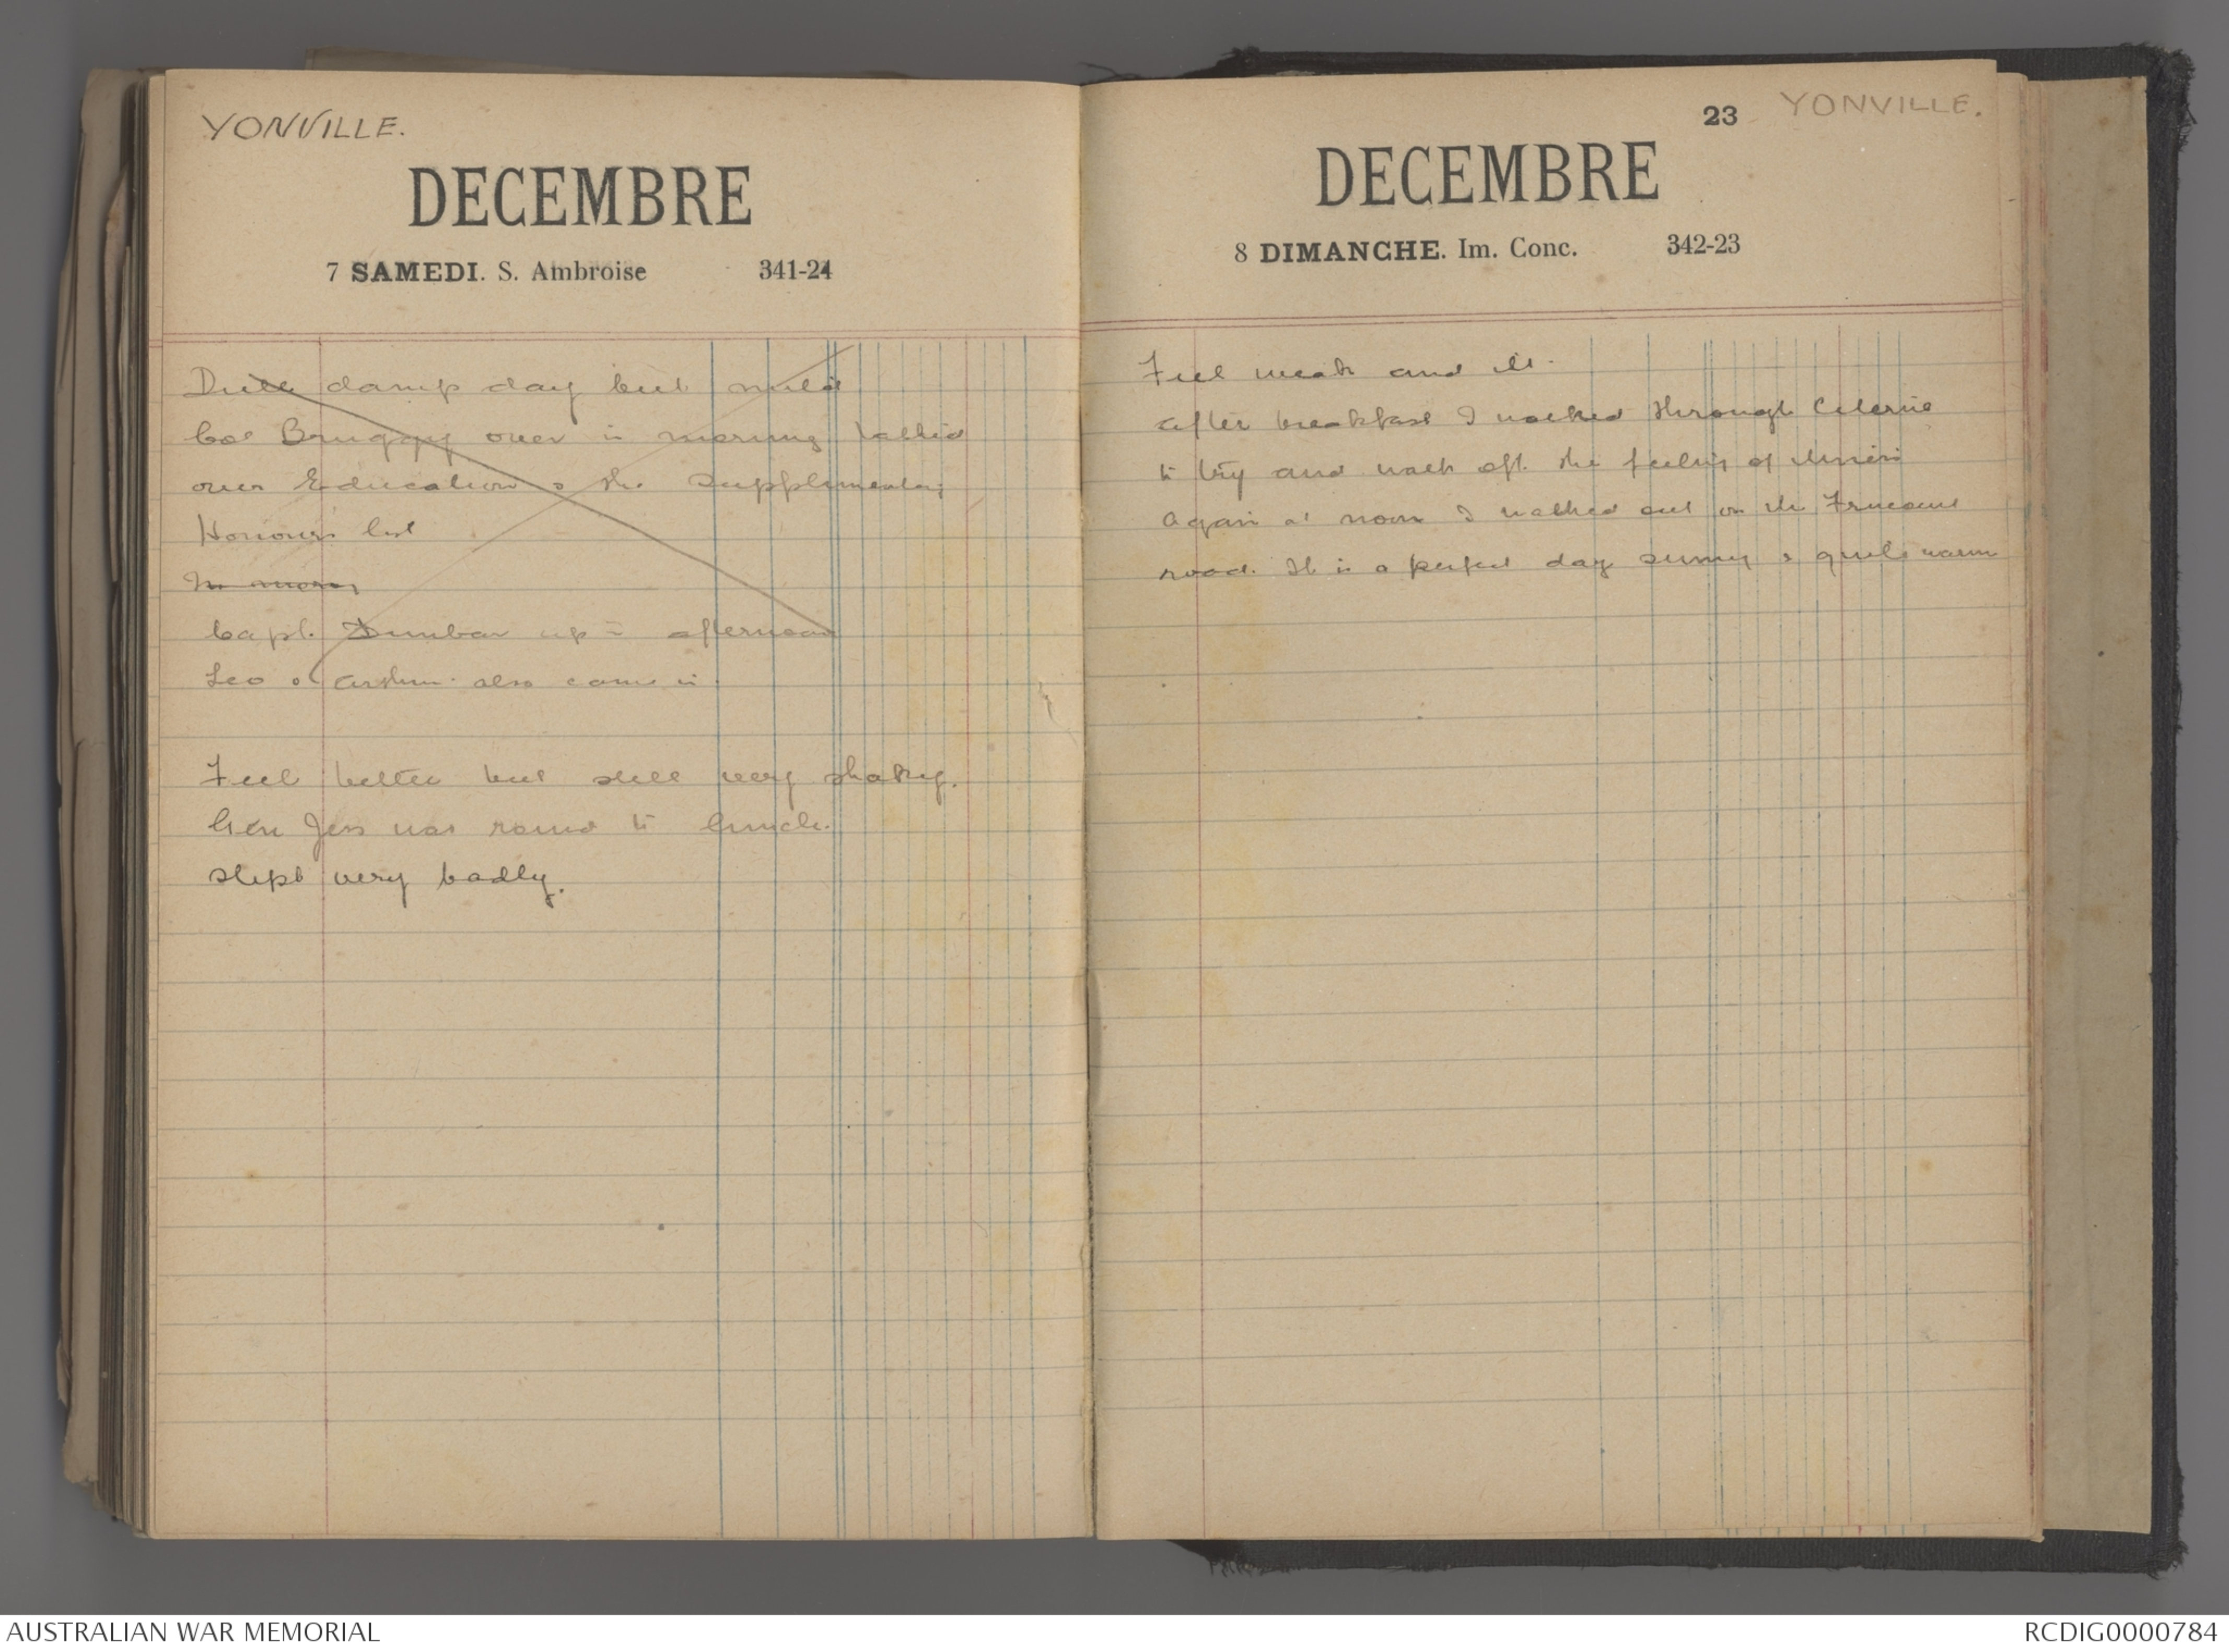 YONVILLE.
DECEMBRE
7 SAMEDI. S. Ambroise 341-24
Dull damp day but mild
Col Bruggy over in morning talked
over Education & the Supplementary
Honours list
Capt. Dunbar up in afternoon
Leo & Arthur also came in
Feel better but still very shaky.
Gen Jess was round to lunch.
slept very badly.
23 YONVILLE.
DECEMBRE
8 DIMANCHE. Im. Conc. 342-23
Feel weak and ill.
after breakfast I walked through Citerne
to try and walk off the feeling of illness
Again at noon I walked out on the Frucourt
road. It is a perfect day sunny & quite warm
AUSTRALIAN WAR MEMORIAL
RCDIG0000784